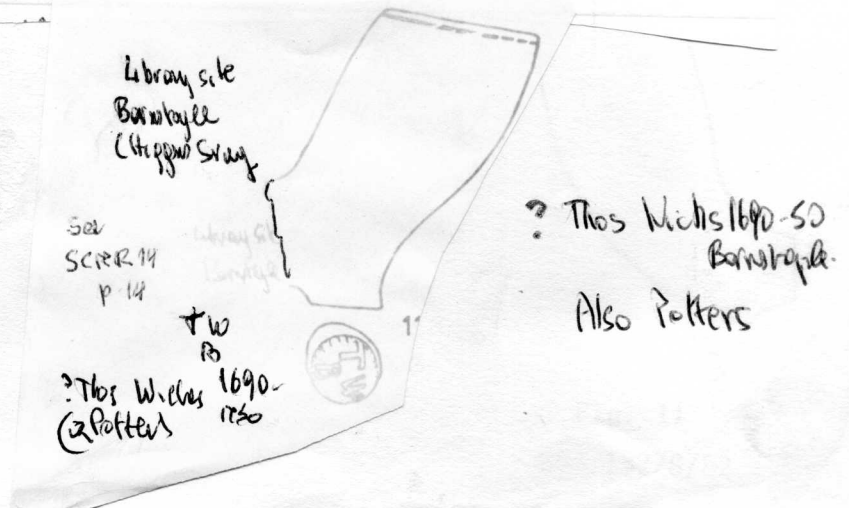 Library site
Barnstaple
(Higgins Survey
See
SCPRR 14
p. 14
TW
B
? Thos Wiches 1690-
1750
(2 Potters
11
TW
? Thos Wichs 1690-50
Barnstaple.
Also Potters